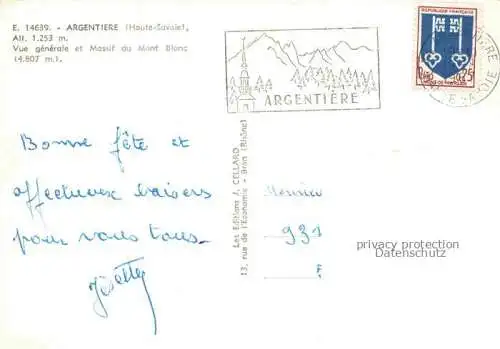 E. 14639. - ARGENTIERE (Haute-Savoie),
Alt. 1.253 m.
Vue générale et Massif du Mont Blanc
(4.807 m.).
ARGENTIÈRE
REPUBLIQUE FRANÇAISE
0,25
Bonne fête et
affectueux baisers
pour vous tous.
Josette
Les Editions J. CELLARD
13, rue de l'Economie - Bron (Rhône)
Monsieur
931
F.
privacy protection
Datenschutz